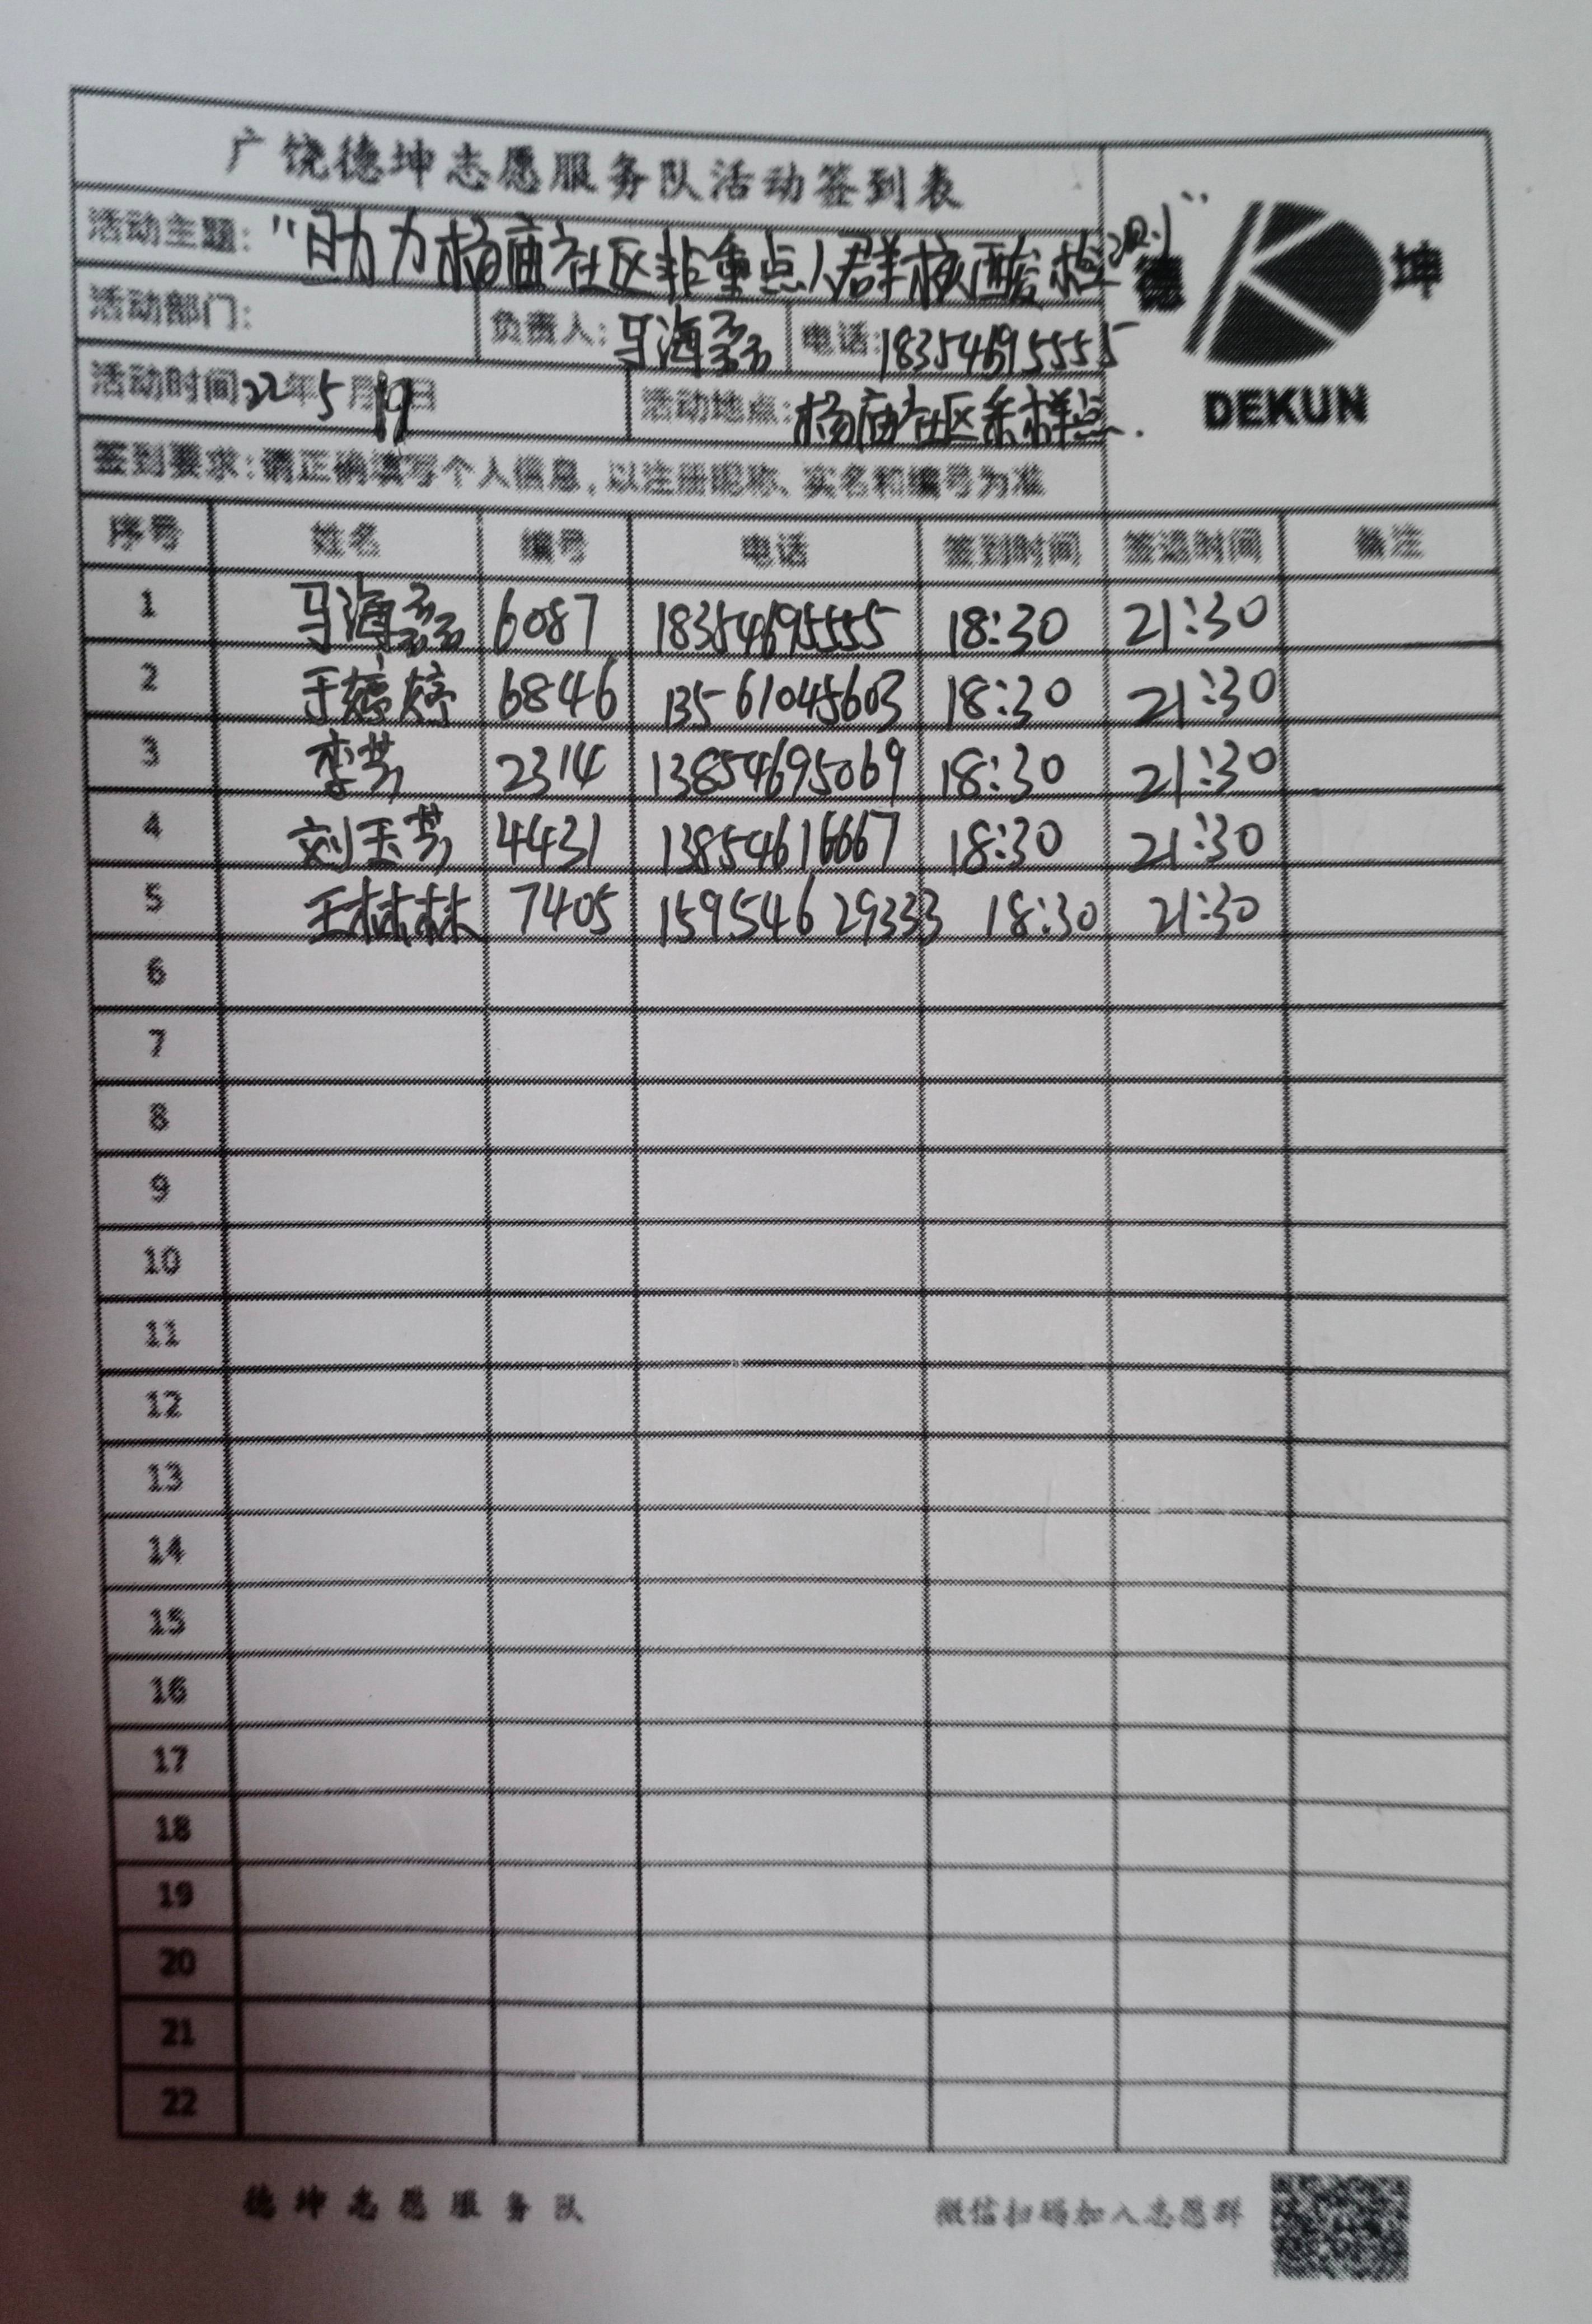 广饶德坤志愿服务队活动签到表
活动主题: "助力杨庙社区非重点人群核酸检测"
德 坤
DEKUN
活动部门: 负责人: 马海磊 电话: 18354695555
活动时间 22年5月19日 活动地点: 杨庙社区采样点.
签到要求: 请正确填写个人信息, 以注册昵称、实名和编号为准
序号 姓名 编号 电话 签到时间 签退时间 备注
1 马海磊 6087 18354695555 18:30 21:30
2 于婷婷 6846 13561045603 18:30 21:30
3 李芳 2314 13854695069 18:30 21:30
4 刘玉芳 4431 13854616667 18:30 21:30
5 王林林 7405 15954629333 18:30 21:30
6
7
8
9
10
11
12
13
14
15
16
17
18
19
20
21
22
德坤志愿服务队 微信扫码加入志愿群